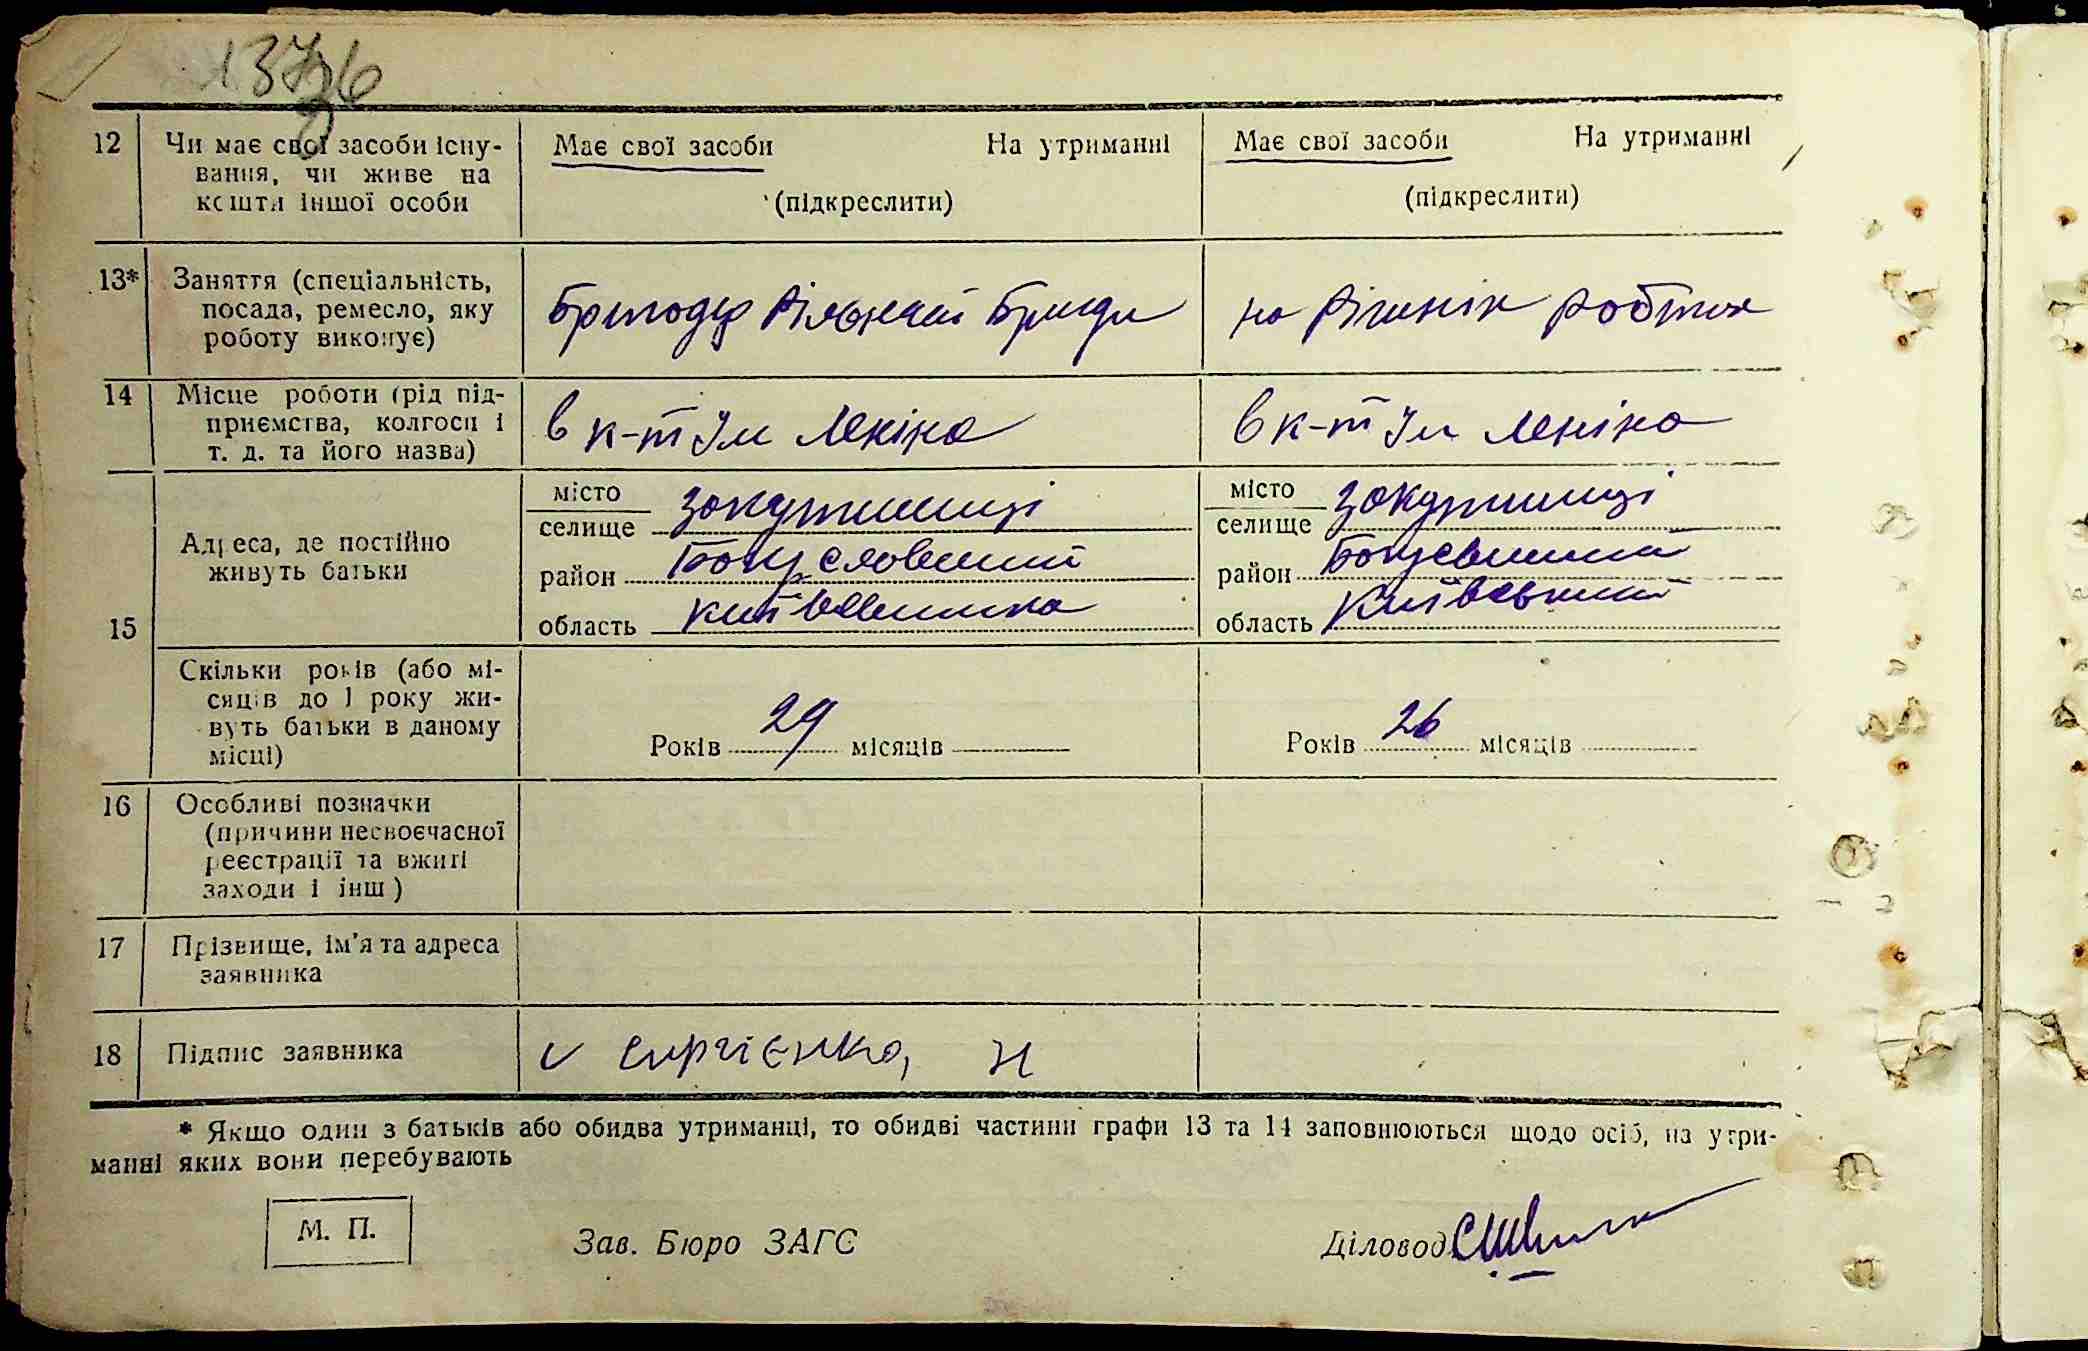 137
12 Чи має свої засоби існу- Має свої засоби На утриманні Має свої засоби На утриманні
вання, чи живе на
кошти іншої особи (підкреслити) (підкреслити)
13* Заняття (спеціальність,
посада, ремесло, яку Бригадір Рільничої Бригади на Різних роботах
роботу виконує)
14 Місце роботи (рід під-
приємства, колгосп і в к-пі Ім Леніна в к-пі Ім Леніна
т. д. та його назва)
місто місто
селище Закутинці селище Закутинці
Адреса, де постійно
живуть батьки район Богуславський район
15 область Київська область
Скільки років (або мі-
сяців до 1 року жи-
вуть батьки в даному Років 29 місяців Років 26 місяців
місці)
16 Особливі позначки
(причини несвоєчасної
реєстрації та вжиті
заходи і інш)
17 Прізвище, ім'я та адреса
заявника
18 Підпис заявника Сиргієнко, Н
* Якщо один з батьків або обидва утриманці, то обидві частини графи 13 та 14 заповнюються щодо осіб, на утри-
манні яких вони перебувають
М. П. Зав. Бюро ЗАГС Діловод